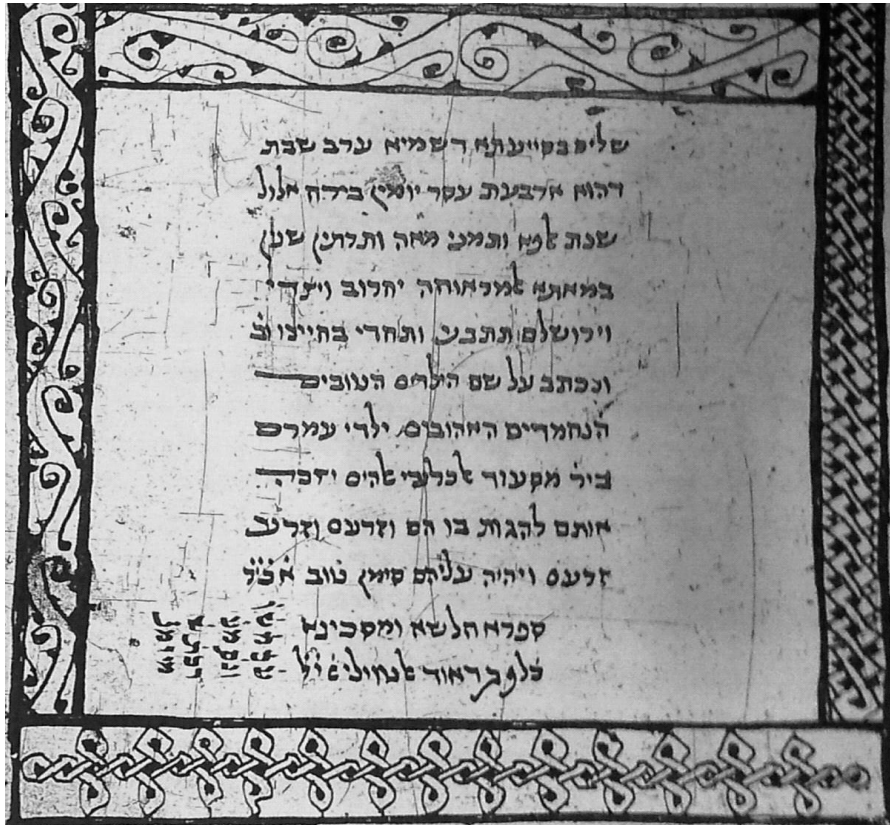 שלים בסייעתא דשמיא ערב שבת
דהוא ארבעת עסר יומין בירח אלול
שנת אלפא ותמני מאה ותלתין שנין
במאתא אלמראוחה יחרוב ויצדי
וירושלם תתבני ותחדי בחיינו
ונכתב על שם הילדים הטובים
הנחמדים האהובים ילדי עמרם
ביר מסעוד אלכלעי אלהים יזכה
אותם להגות בו הם וזרעם וזרע
זרעם ויהיה עליהם סימן טוב
ספרא חלשא ומסכינא
דאוד